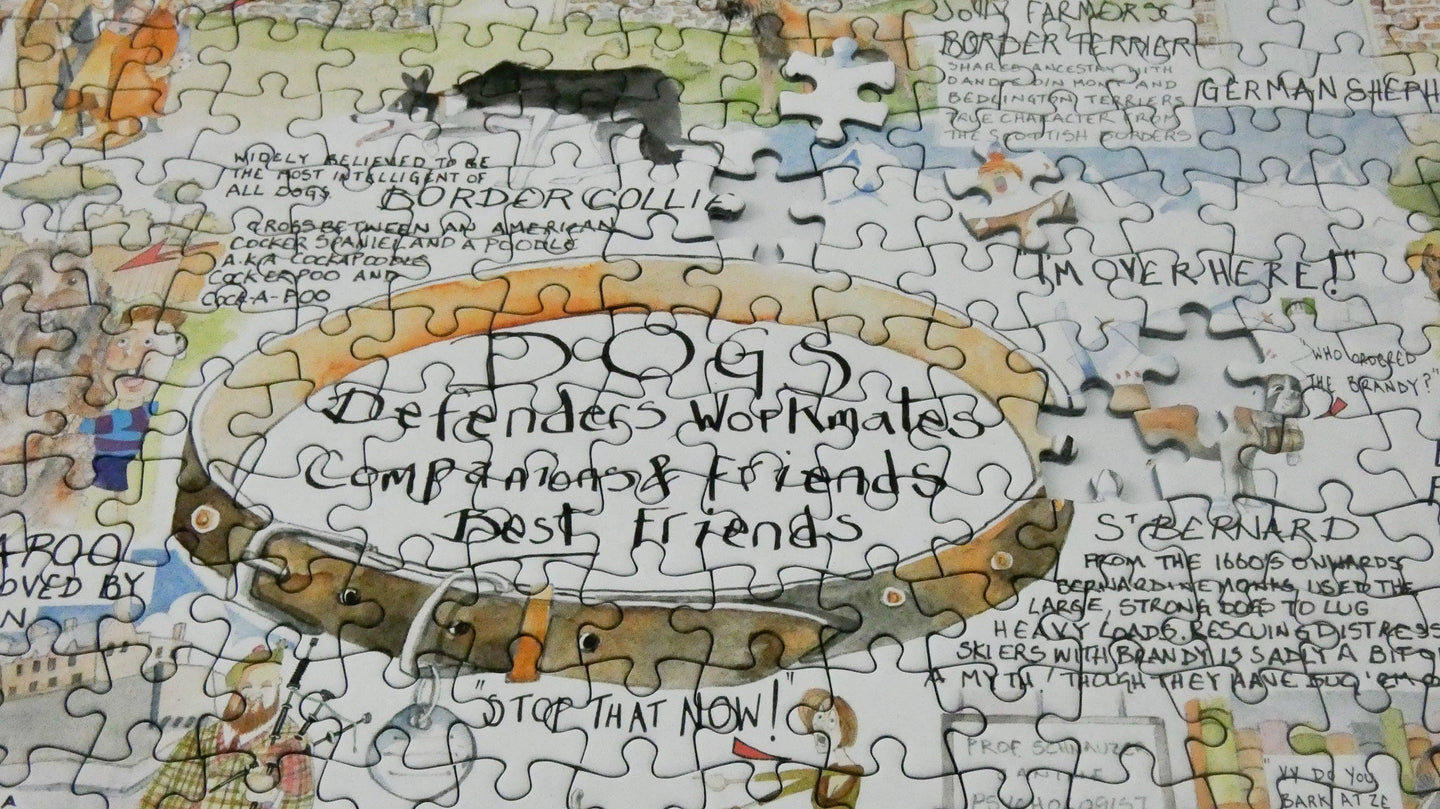 JOLLY FARMERS
BORDER TERRIER
SHARES ANCESTRY WITH
DANDIE DINMONT AND
BEDLINGTON TERRIERS
TRUE CHARACTER FROM
THE SCOTTISH BORDERS
GERMAN SHEPH
WIDELY BELIEVED TO BE
THE MOST INTELLIGENT OF
ALL DOGS
BORDER COLLIE
CROSS BETWEEN AN AMERICAN
COCKER SPANIEL AND A POODLE
A.K.A COCKAPOODLE
COCKERPOO AND
COCK-A-POO
"I'M OVER HERE!"
"WHO ORDERED
THE BRANDY?"
DOGS
Defenders Workmates
Companions & Friends
Best Friends
APOO
OVED BY
N
ST BERNARD
FROM THE 1660'S ONWARDS
BERNARDINE MONKS USED THE
LARGE, STRONG DOGS TO LUG
HEAVY LOADS. RESCUING DISTRESS
SKIERS WITH BRANDY IS SADLY A BIT O
A MYTH! THOUGH THEY HAVE DUG 'EM O
"STOP THAT NOW!"
PROF SCHNAUZER
CANINE
PSYCHOLOGIST
"VY DO YOU
BARK AT ZE